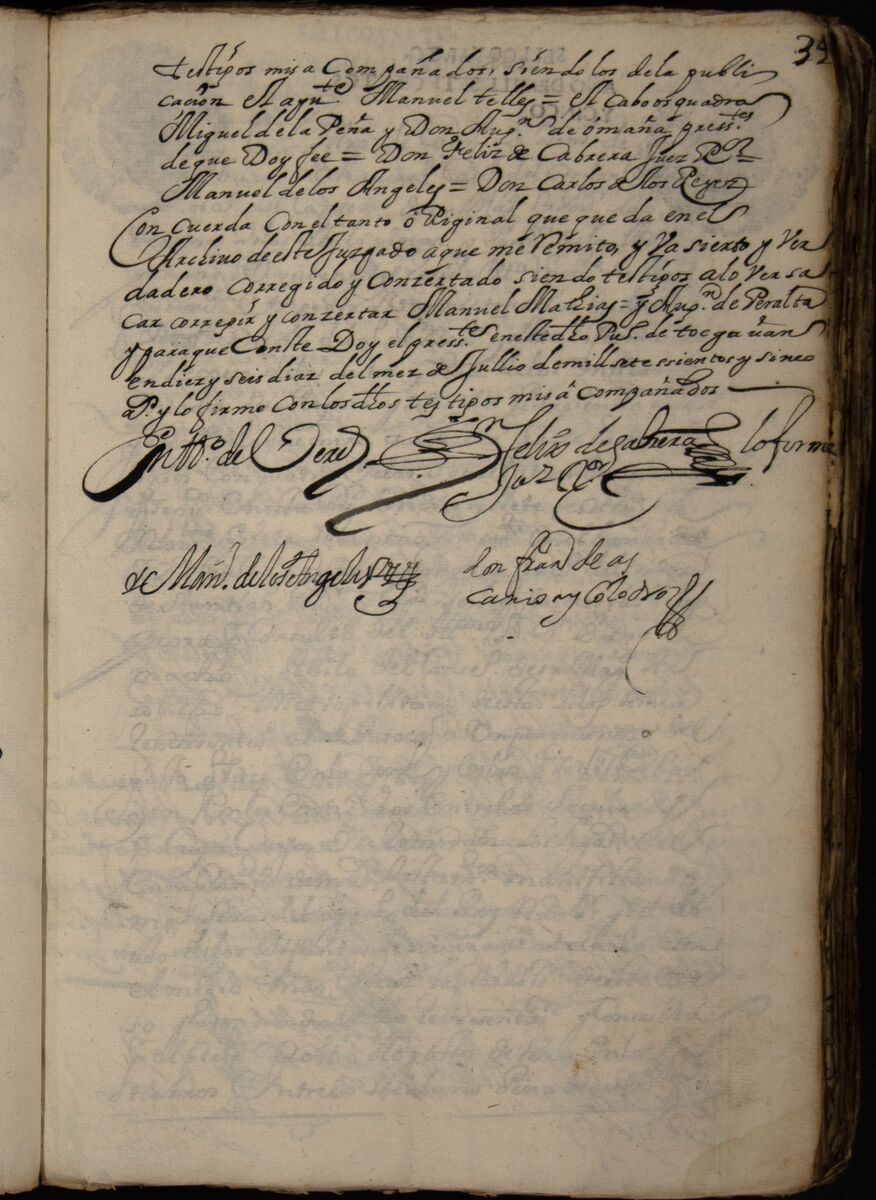 35
testigos mis a Compañados, siendo los dela publi
cación El ayu.te Manuel telles = El Cabo os quadra
Miguel de la Peña y Don Aug.n de ómaña press.tes
de que Doy fee = Don Feliz de Cabrera Juez R.or =
Manuel de los Angeles = Don Carlos de los Reyes
Con cuerda Con el tanto ó Riginal que que da en el
Archivo de este Juzgado a que me Remito, y Va sierto y Ver
dadero corregido y Conzertado siendo testigos a lo Ver sa
car corregir y conzertar Manuel Mathias = y Aug.n de Peralta
y para que Conste Doy el press.te en este dho Pu.o de
en diez y seis dias del mes de Jullio de mill sete ssientos y sinco
a.s y lo firme con los dhos testigos mis a compañados
Felix de Cabrera lo firme
Juz R.or
Man.l de los Angeles
don fran.co de as
canio y Colodro